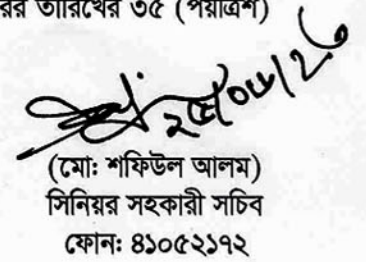 তারিখের ৩৫ (পঁয়ত্রিশ)
(মো: শফিউল আলম)
সিনিয়র সহকারী সচিব
ফোন: ৪১০৫২১৭২